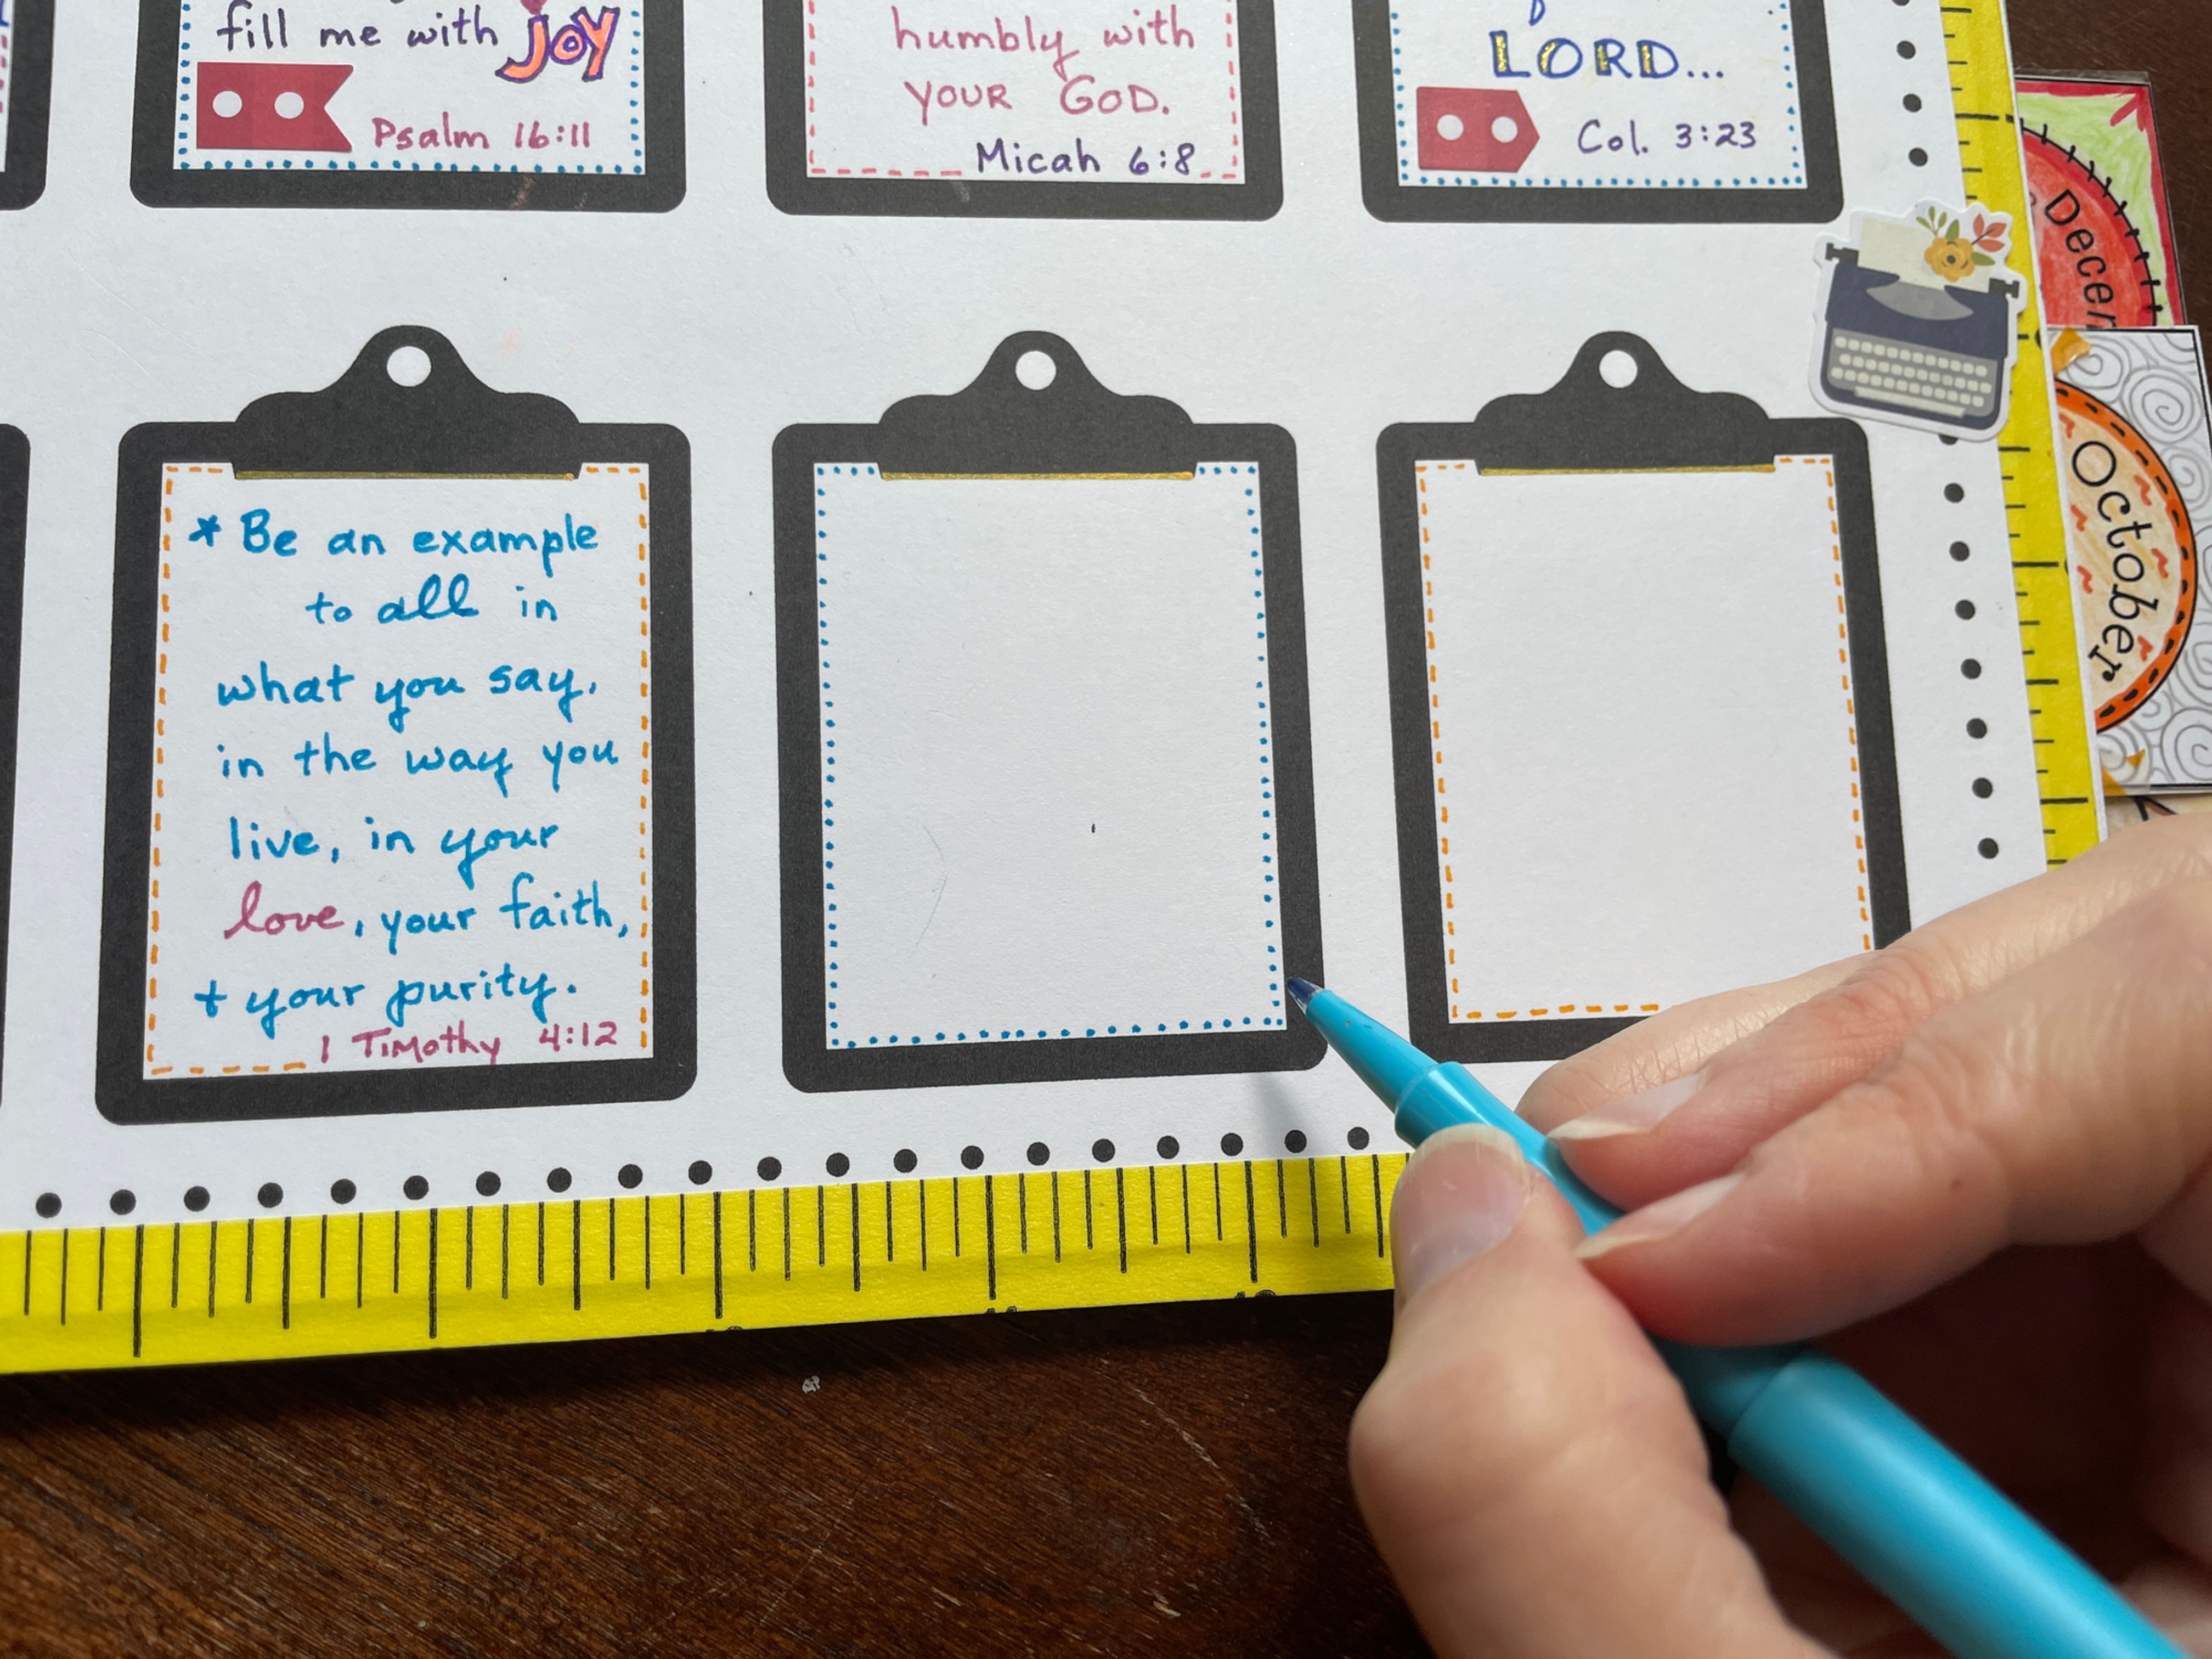 fill me with JOY
Psalm 16:11
humbly with
YOUR GOD.
Micah 6:8
LORD...
Col. 3:23
* Be an example
to all in
what you say,
in the way you
live, in your
love, your faith,
+ your purity.
1 Timothy 4:12
October